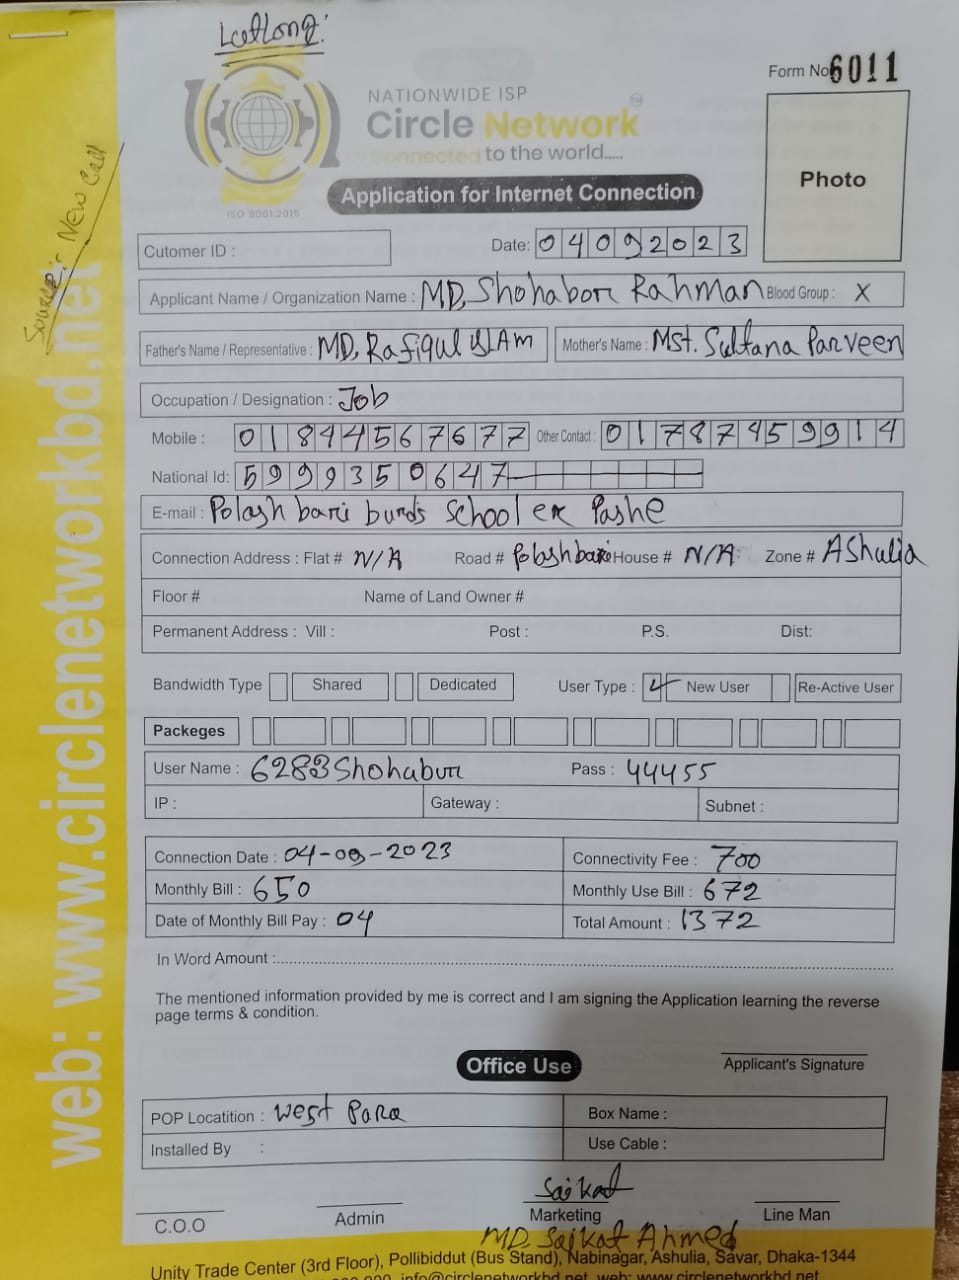 Latlong:
Form No 6011
NATIONWIDE ISP
Circle Network
connected to the world.....
ISO 9001:2015
Application for Internet Connection
Photo
Source:- New Call
Cutomer ID :
Date: 04092023
Applicant Name / Organization Name : MD, Shohabor Rahman Blood Group : X
Father's Name / Representative : MD, Rafiqul islAm Mother's Name : Mst. Sultana Parveen
Occupation / Designation : Job
Mobile : 01844567677 Other Contact : 01787459914
National Id: 5999350647
E-mail : Polash bari burds School er Pashe
Connection Address : Flat # N/A Road # Polashbari House # N/A Zone # AShulia
Floor # Name of Land Owner #
Permanent Address : Vill : Post : P.S. Dist:
Bandwidth Type Shared Dedicated User Type : New User Re-Active User
Packeges
User Name : 6283Shohabur Pass : 44455
IP : Gateway : Subnet :
Connection Date : 04-09-2023 Connectivity Fee : 700
Monthly Bill : 650 Monthly Use Bill : 672
Date of Monthly Bill Pay : 04 Total Amount : 1372
In Word Amount :
The mentioned information provided by me is correct and I am signing the Application learning the reverse
page terms & condition.
Office Use
Applicant's Signature
POP Locatition : West Para Box Name :
Installed By : Use Cable :
Saikat
C.O.O Admin Marketing Line Man
MD. Saikat Ahmed
Unity Trade Center (3rd Floor), Pollibiddut (Bus Stand), Nabinagar, Ashulia, Savar, Dhaka-1344
info@circlenetworkbd.net, web: www.circlenetworkbd.net
web: www.circlenetworkbd.net